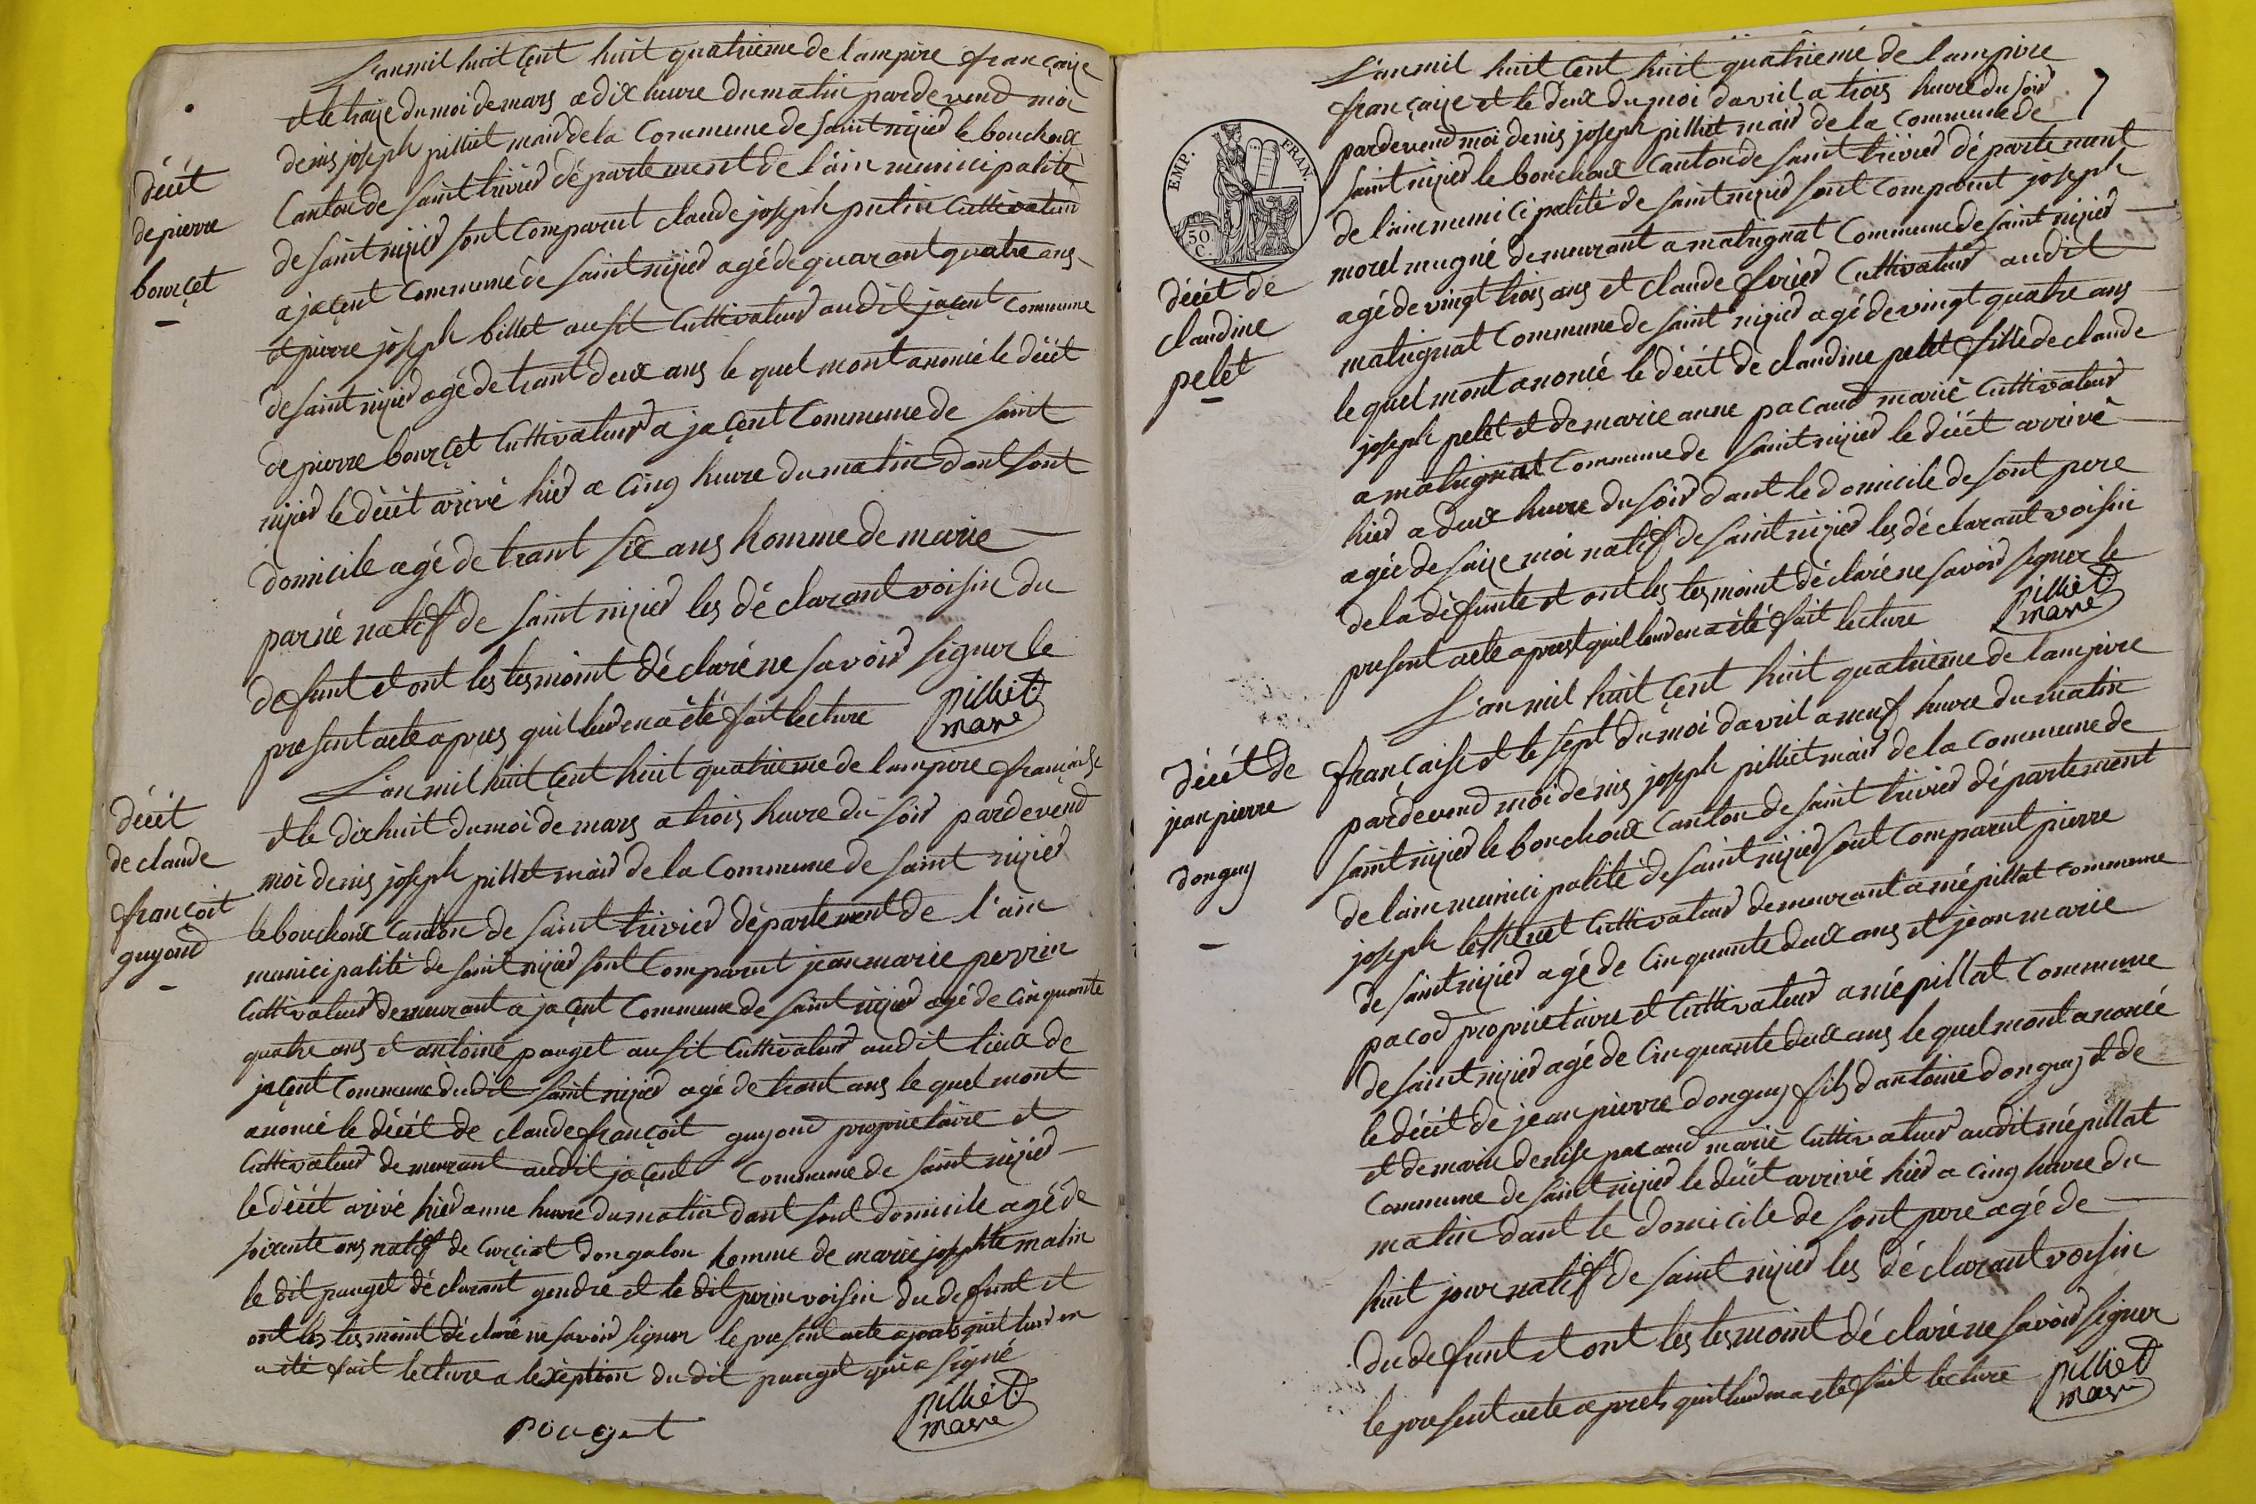 L'an mil huit çent huit quatrieme de lampire françaije
et le traize du moi de mars a dix heure du matin pardevend moi
denis joseph pilliet maird de la Commune de saint nizied le bouchoux
Canton de saint trivied département de l'ain municipalité
de saint nizied sont Comparut claude joseph putin Cultivateurd
a jaçent Commune de saint nizied agé de quarant quatre ans
et pierre joseph billet ausit Cultivateurd audit jaçent commune
de saint nizied agé de trant deux ans le quel mont anoncé le décét
de pierre bourçet Cultivateurd a jaçent Commune de saint
nizied le décét arivé hierd a cinq heure du matin dant sont
domicile agé de trant six ans homme de marie
parvé natif de saint nizied les déclarant voisin du
defunt et ont les tesmoint déclaré ne savoird signer le
present acte apres quil leurd en a été fait lecture
pilliet
mare
décét
de pierre
bourçet
L'an mil huit çent huit quatrieme de lampire française
et le dix huit du moi de mars a trois heure du soird pardevend
moi denis joseph pilliet maird de la Commune de saint nizied
le bouchoux Canton de saint trivied département de l'ain
municipalité de saint nizied sont Comparut jean marie perrin
Cultivateurd demeurant a jaçent Commune de saint nizied agé de cinquante
quatre ans et antoine pauget ausit Cultivateurd audit lieux de
jaçent Commune dudit saint nizied agé de trant ans le quel mont
anoncé le décét de claude françoit guyond proprietaire et
Cultivateurd demeurant audit jaçent Commune de saint nizied
le décét arivé hierd a une heure du matin dant sont domicile agé de
soixante ans natif de Curciat dongalon homme de marie josephte matin
le dit pauget déclarant gendre et le dit perin voisin du defunt et
ont les tesmoint déclaré ne savoird signer le present acte apres quil leurd en
a été fait lecture a lexeption du dit pauget qui a signé
pouget
pilliet
mare
décét
de claude
françoit
guyond
7
EMP. FRAN.
50
C.
L'an mil huit çent huit quatrieme de lampire
françaije et le deux du moi davril a trois heure du soird
pardevend moi denis joseph pilliet maird de la Commune de
saint nizied le bouchoux Canton de saint trivied département
de l'ain municipalité de saint nizied sont Comparut joseph
morel mugné demeurant a matrignat Commune de saint nizied
agé de vingt trois ans et claude firied Cultivateurd audit
matrignat Commune de saint nizied agé de vingt quatre ans
le quel mont anoncé le décét de claudine pelet fille de claude
joseph pelet et de marie anne pacaud marié Cultivateurd
a matrignat Commune de saint nizied le décét arrivé
hierd a deux heure du soird dant le domicile de sont pere
agée de saize moi natif de saint nizied les déclarant voisin
de la défunte et ont les tesmoint déclaré ne savoird signer le
present acte aprest quil leurd en a été fait lecture
pilliet
mare
décét de
claudine
pelet
L'an mil huit çent huit quatrieme de lampire
française et le sept du moi davril a neuf heure du matin
pardevend moi denis joseph pilliet maird de la Commune de
saint nizied le bouchoux Canton de saint trivied département
de l'ain municipalité de saint nizied sont Comparut pierre
joseph Cultivateurd demeurant a mépillat commune
de saint nizied agé de Cinquante deux ans et jean marie
pacod proprietaire et Cultivateurd a mépillat Commune
de saint nizied agé de Cinquante deux ans le quel mont anoncé
le décét de jean pierre donguy fils dantoine donguy et de
et de marie denise pacaud marié Cultivateurd audit mépillat
Commune de saint nizied le décét arrivé hierd a cinq heure du
matin dant le domicile de sont pere agé de
huit jour natif de saint nizied les déclarant voisin
du defunt et ont les tesmoint déclaré ne savoird signer
le present acte aprets quil leurd en a été fait lecture
pilliet
mare
décét de
jean pierre
donguy